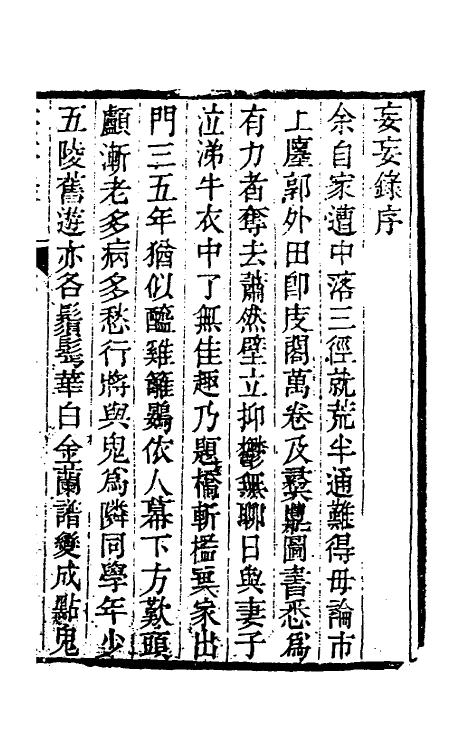 妄妄錄序
余自家遭中落三徑就荒半通難得毋論市
上廛郭外田卽庋閣萬卷及彝鼎圖書悉爲
有力者奪去蕭然壁立抑鬱無聊日與妻子
泣涕牛衣中了無佳趣乃題橋斬檻棄家出
門三五年猶似醯雞籬鷃依人幕下方歎頭
顱漸老多病多愁行將與鬼爲隣同學年少
五陵舊遊亦各鬚鬓華白金蘭譜變成點鬼